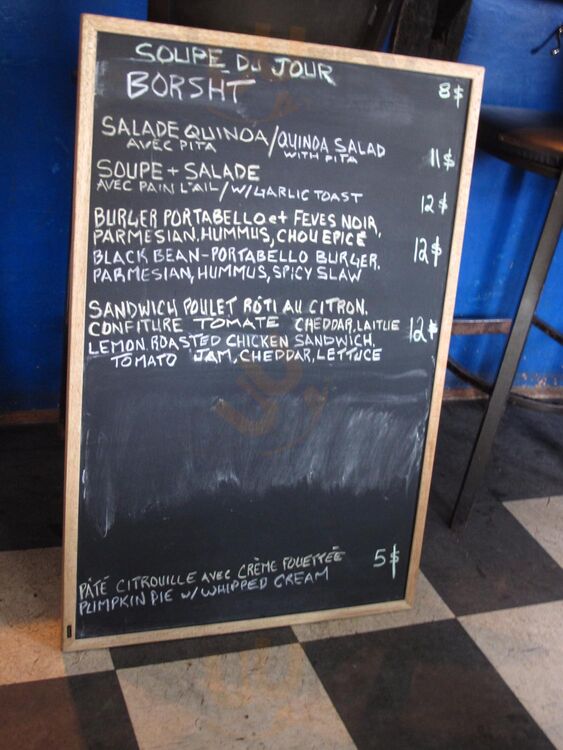 SOUPE DU JOUR
BORSHT 8$
SALADE QUINOA/QUINOA SALAD
AVEC PITA WITH PITA 11$
SOUPE + SALADE
AVEC PAIN L'AIL / W/GARLIC TOAST 12$
BURGER PORTABELLO et FEVES NOIR,
PARMESIAN, HUMMUS, CHOU EPICÉ 12$
BLACK BEAN-PORTABELLO BURGER,
PARMESIAN, HUMMUS, SPICY SLAW
SANDWICH POULET RÔTI AU CITRON,
CONFITURE TOMATE CHEDDAR, LAITUE 12$
LEMON ROASTED CHICKEN SANDWICH,
TOMATO JAM, CHEDDAR, LETTUCE
PÂTÉ CITROUILLE AVEC CRÈME FOUETTÉE 5$
PUMPKIN PIE W/ WHIPPED CREAM